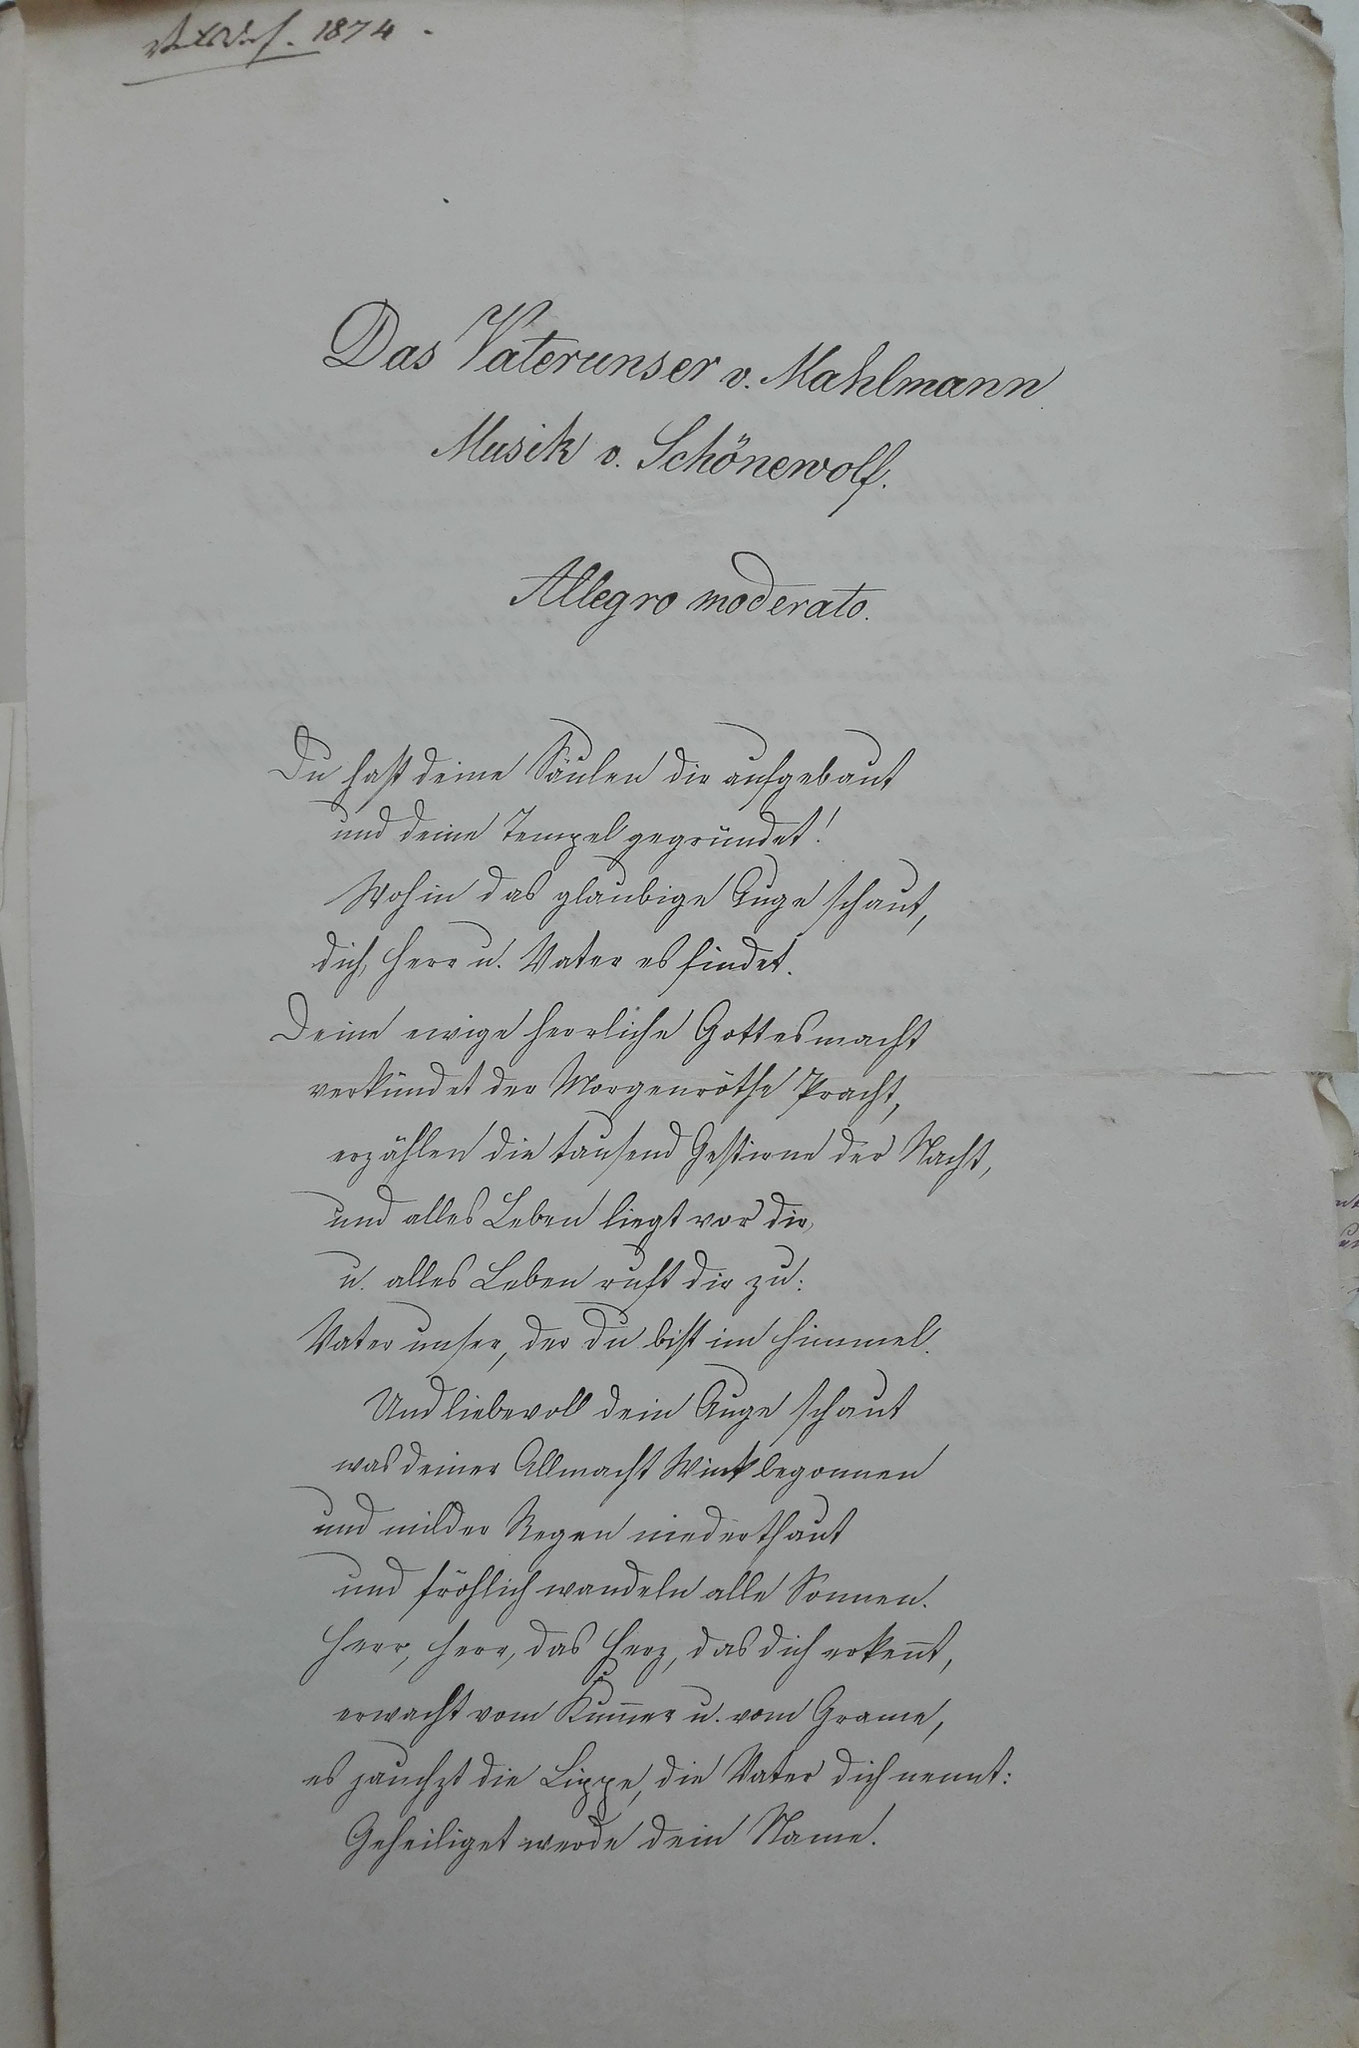 1874.
Das Vaterunser v. Mahlmann.
Musik v. Schönewolf.
Allegro moderato.
Du hast deine Säulen dir aufgebaut
und deine Tempel gegründet!
Wohin das glaubige Auge schaut,
dich, Herr u. Vater es findet.
Deine ewige herrliche Gottesmacht
verkündet der Morgenröthe Pracht,
erzählen die tausend Gestirne der Nacht,
und alles Leben liegt vor dir,
u. alles Leben ruft dir zu:
Vater unser, der du bist im Himmel.
Und liebevoll dein Auge schaut
was deiner Allmacht Wink begonnen
und milder Regen niederthaut
und fröhlich wandeln alle Sonnen.
Herr, Herr, das Herz, das dich erkeñt,
erwacht vom Kum̅er u. vom Grame,
es jauchzt die Lippe, die Vater dich nennt:
Geheiliget werde dein Name.